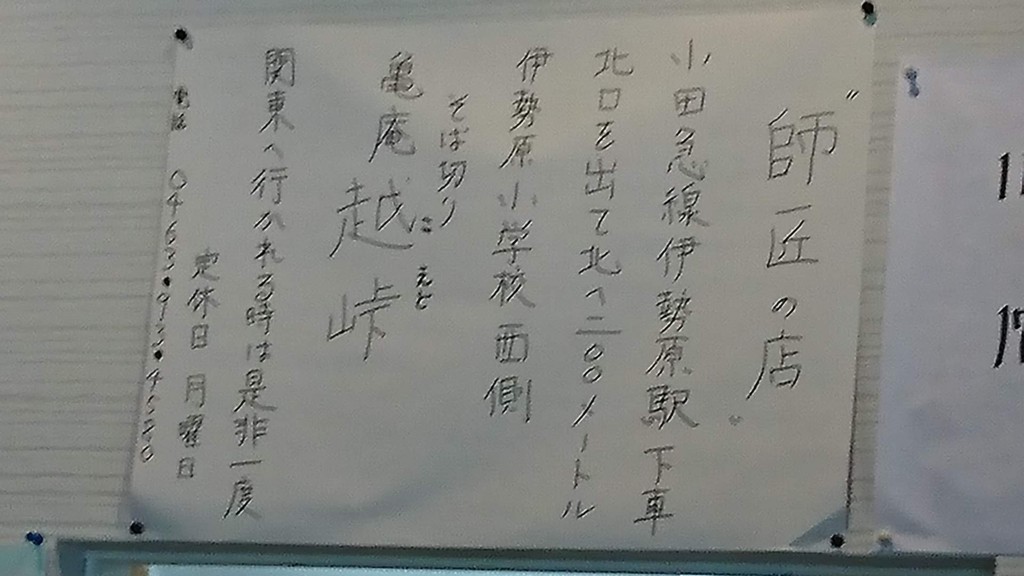 〝師匠の店〟
小田急線伊勢原駅下車
北口を出て北へ二〇〇メートル
伊勢原小学校西側
そば切り
亀庵 越峠
関東へ行かれる時は是非一度
定休日 月曜日
電話